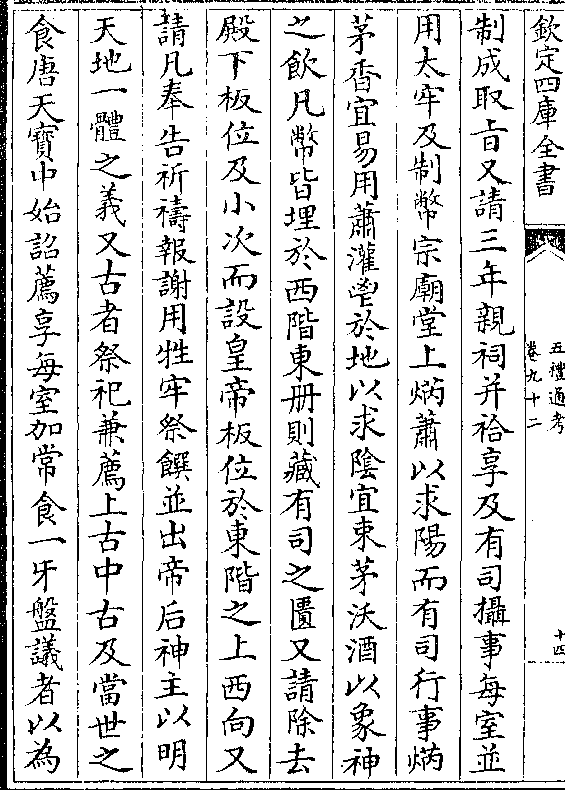 欽定四庫全書
五禮通考
卷九十二
十四
制成取㫖又請三年親祠并祫享及有司攝事每室並
用太牢及制幣宗廟堂上焫蕭以求陽而有司行事焫
茅香宜易用蕭灌鬯於地以求陰宜束茅沃酒以象神
之飲凡幣皆埋於西階東冊則藏有司之匱又請除去
殿下板位及小次而設皇帝板位於東階之上西向又
請凡奉告祈禱報謝用牲牢祭饌並出帝后神主以明
天地一體之義又古者祭祀兼薦上古中古及當世之
食唐天寶中始詔薦享每室加常食一牙盤議者以為